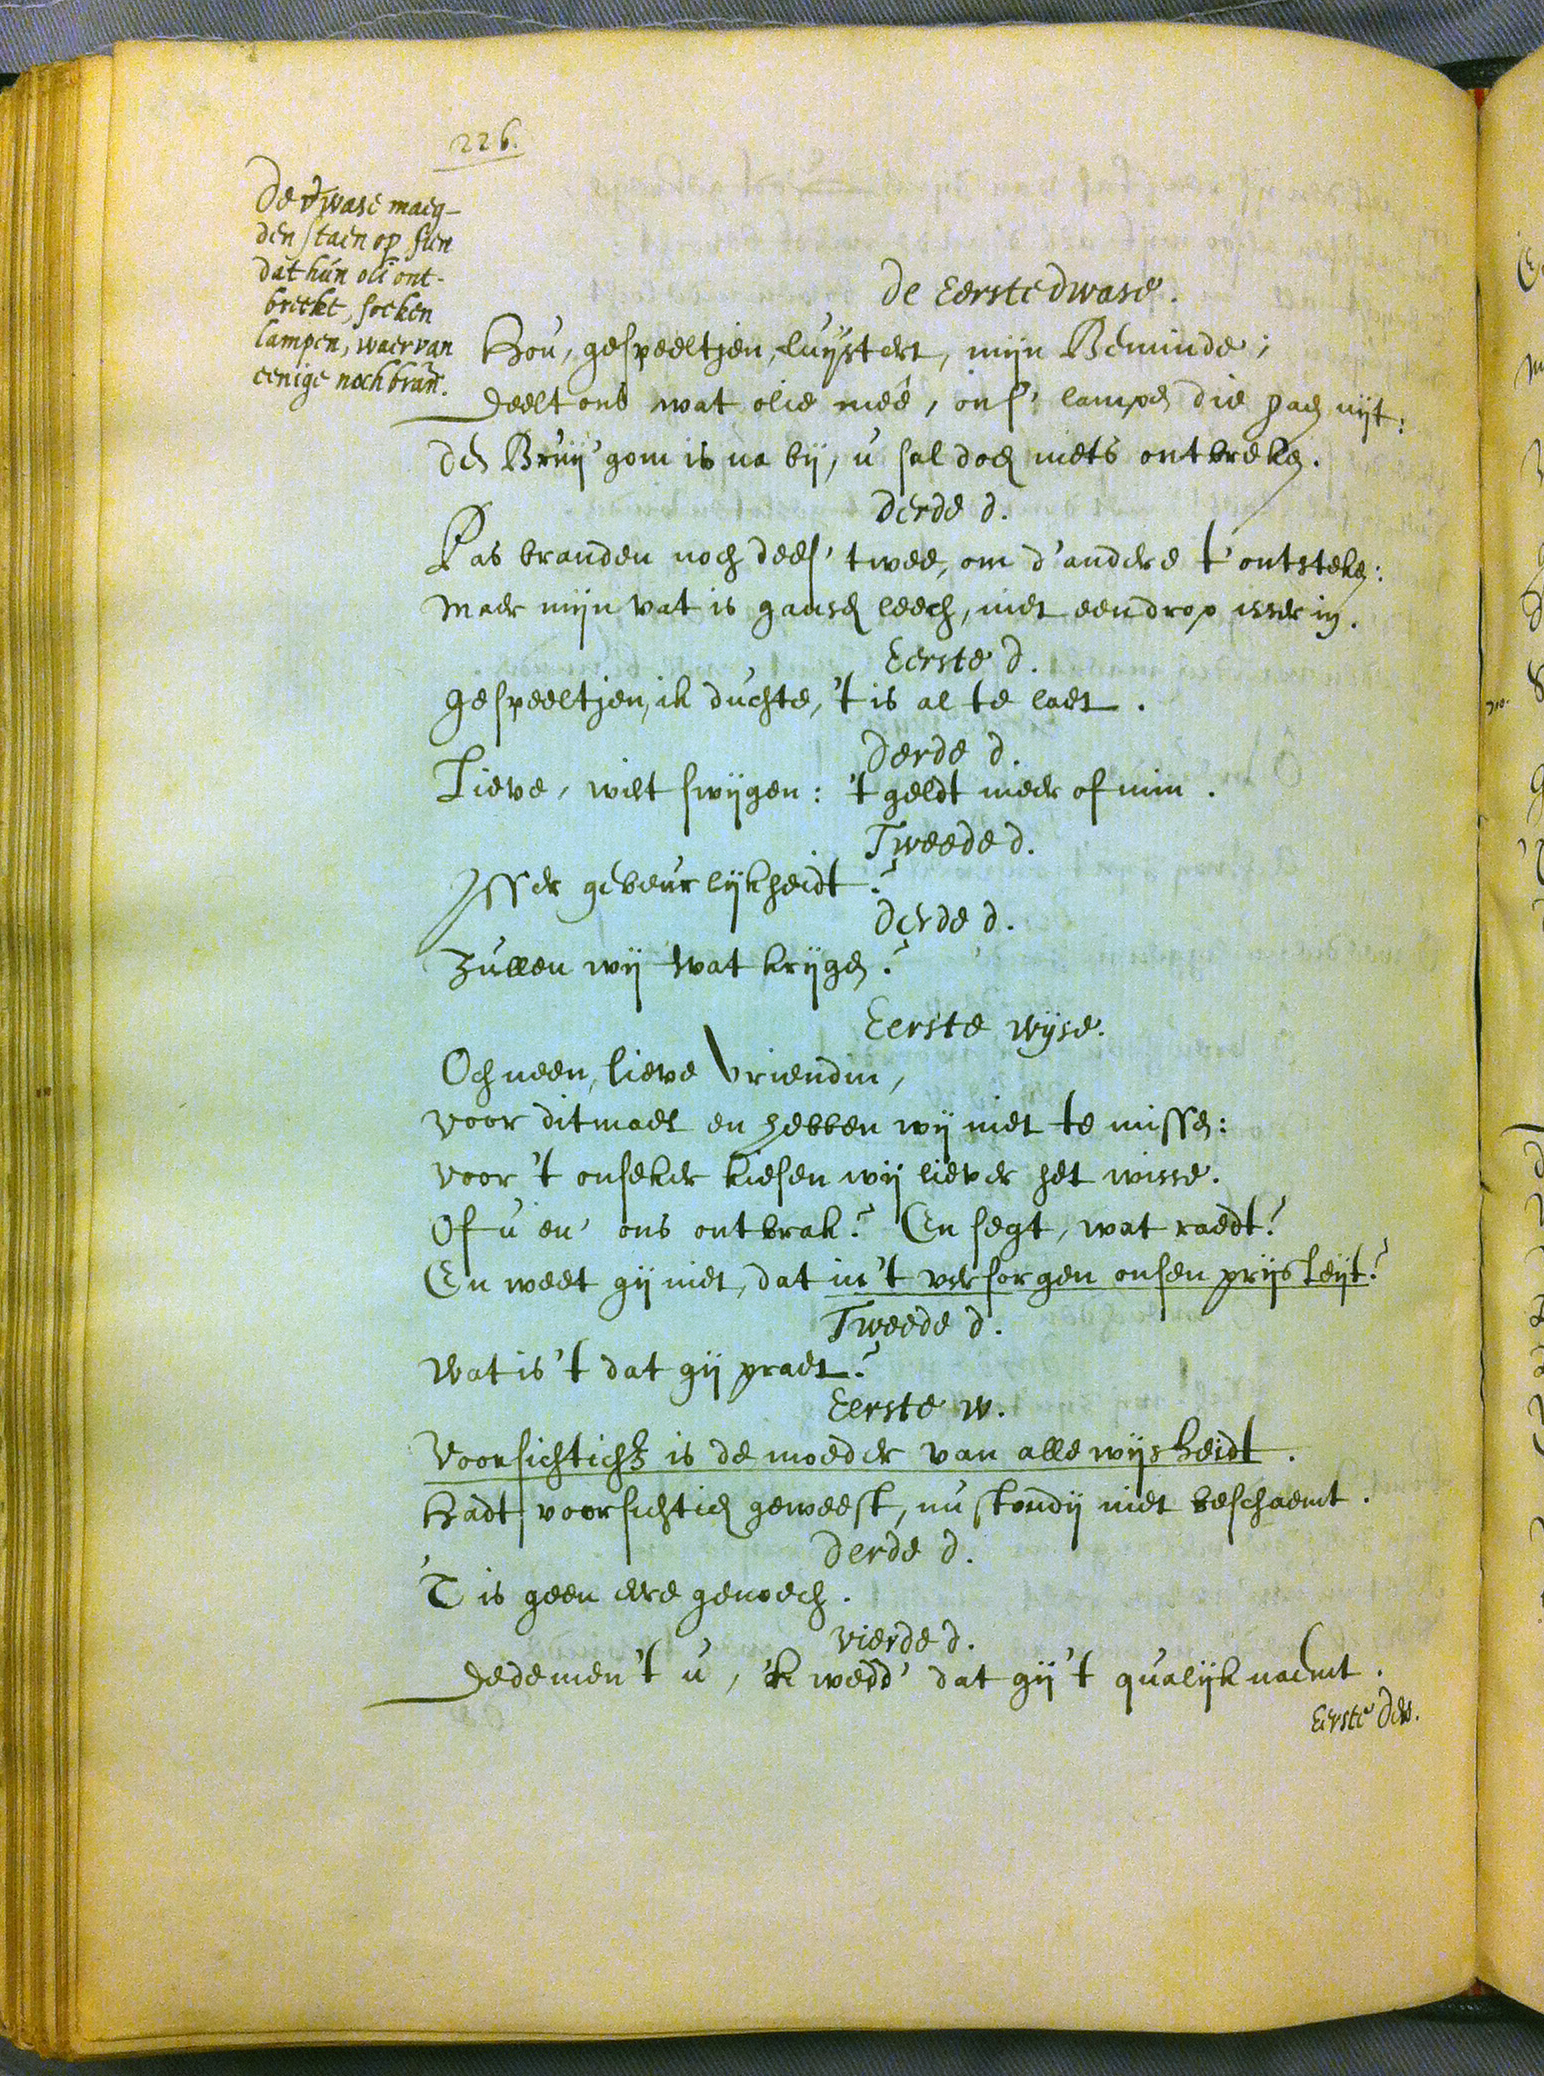 226.
De dwase maeg-
den staen op, sien
dat hun oli ont-
breekt, soeken
lampen, waer van
eenige noch brañ.
De Eerste dwase.
Hou, gespeeltjen, luystert, mijn Beminde;
Deelt ons wat olie meê, ons' lampen die gaen uijt:
Den Bruij'gom is na bij, u sal doch niets ontbreken.
Derde d.
Pas branden noch dees' twee, om d'andere t'ontsteken:
Maer mijn vat is gansch leech, niet een drop isser in.
Eerste d.
Gespeeltjen, ik duchte, 't is al te laet.
Derde d.
Lieve, wilt swijgen: 't geldt meer of min.
Tweede d.
Isser gebeurlijkheidt?
Derde d.
Zullen wij wat krijgen?
Eerste wijse.
Och neen, lieve vriendin,
Voor ditmael en hebben wij niet te missen:
Voor 't onseker kiesen wij liever het wisse.
Of u en' ons ontbrak? En segt, wat raedt?
En weet gij niet, dat in 't versorgen onsen prijs leijt?
Tweede d.
Wat is 't dat gij praet?
Eerste w.
Voorsichticht is de moeder van alle wijsheidt.
Hadt voorsichtich geweest, nu stondij niet beschaemt.
Derde d.
'T is geen eere genoech.
Vierde d.
Dede men 't u, 'k wedd' dat gij 't qualijk naemt.
Eerste